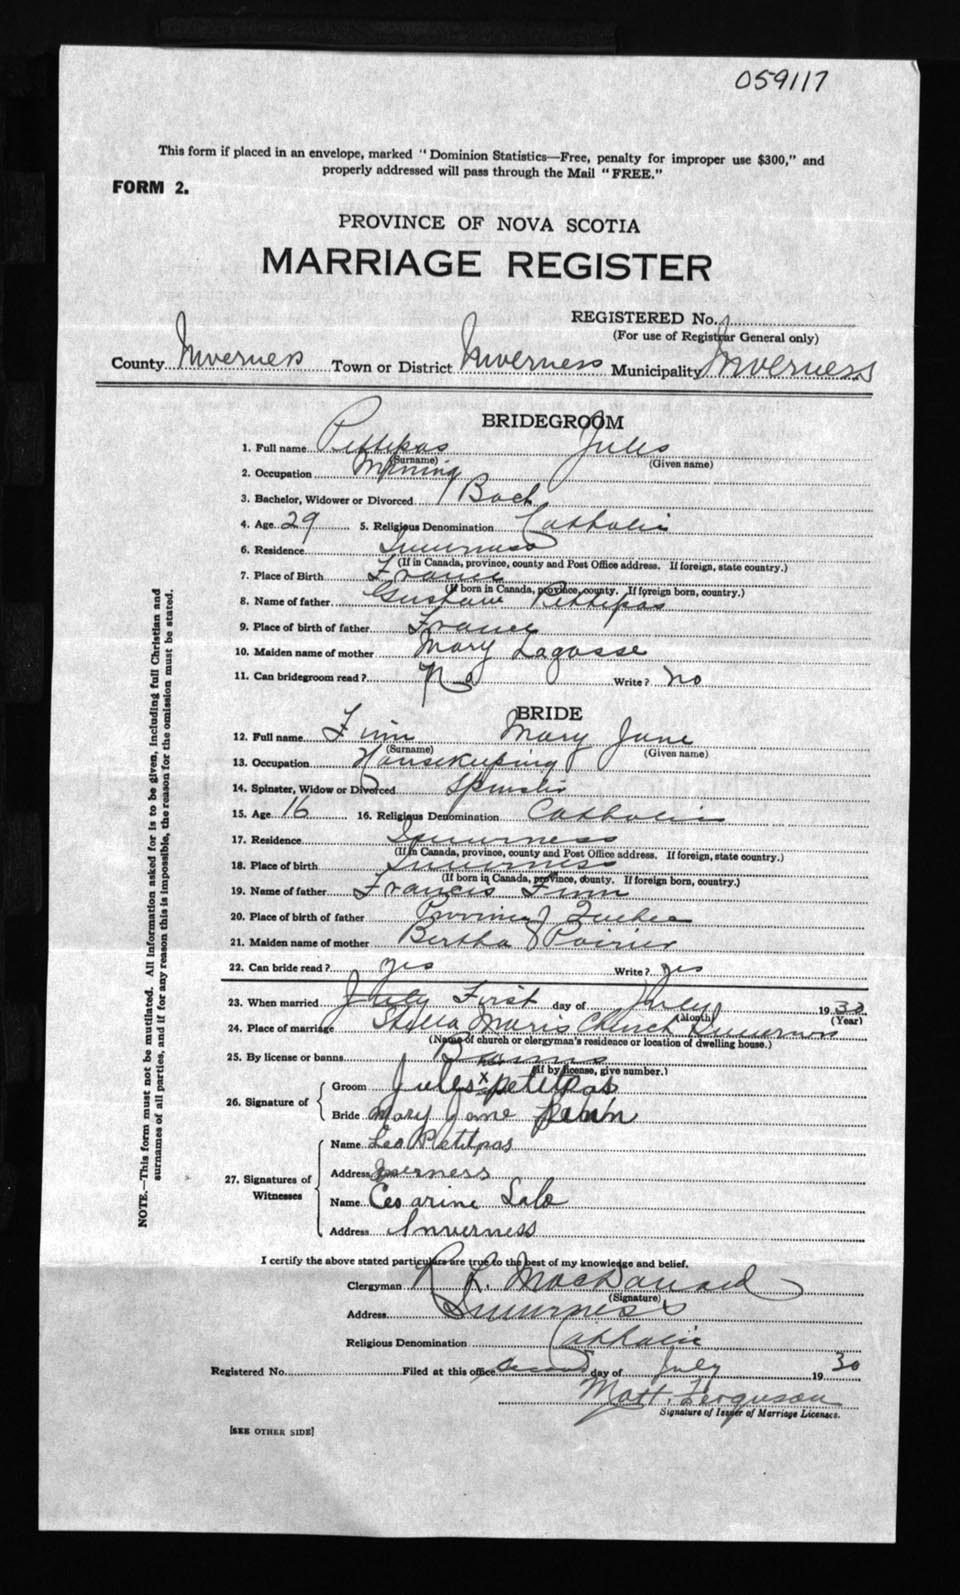 059117
This form if placed in an envelope, marked "Dominion Statistics—Free, penalty for improper use $300," and
properly addressed will pass through the Mail "FREE."
FORM 2.
PROVINCE OF NOVA SCOTIA
MARRIAGE REGISTER
REGISTERED No.
(For use of Registrar General only)
County Inverness Town or District Inverness Municipality Inverness
BRIDEGROOM
1. Full name Pettipas Jules
(Surname) (Given name)
2. Occupation Mining
3. Bachelor, Widower or Divorced Bach
4. Age 29 5. Religious Denomination Catholic
6. Residence Inverness
(If in Canada, province, county and Post Office address. If foreign, state country.)
7. Place of Birth France
(If born in Canada, province, county. If foreign born, country.)
8. Name of father Gustave Pettipas
9. Place of birth of father France
10. Maiden name of mother Mary Lagasse
11. Can bridegroom read? No Write? no
BRIDE
12. Full name Finn Mary Jane
(Surname) (Given name)
13. Occupation Housekeeping
14. Spinster, Widow or Divorced Spinster
15. Age 16 16. Religious Denomination Catholic
17. Residence Inverness
(If in Canada, province, county and Post Office address. If foreign, state country.)
18. Place of birth Inverness
(If born in Canada, province, county. If foreign born, country.)
19. Name of father Francis Finn
20. Place of birth of father Province of Quebec
21. Maiden name of mother Bertha Poirier
22. Can bride read? yes Write? yes
23. When married July First day of July 19
(Month) (Year)
24. Place of marriage Stella Maris Church Inverness
(Name of church or clergyman's residence or location of dwelling house.)
25. By license or banns Banns
(If by license, give number.)
26. Signature of
Groom Jules x Petitpas
Bride Mary Jane
27. Signatures of Witnesses
Name Leo Petitpas
Address Inverness
Name Cesarine Lalo
Address Inverness
I certify the above stated particulars are true to the best of my knowledge and belief.
Clergyman R. L. MacDonald
(Signature)
Address Inverness
Religious Denomination Catholic
Registered No. Filed at this office second day of July 19 30
Matt. Ferguson
Signature of Issuer of Marriage Licenses.
[SEE OTHER SIDE]
NOTE.—This form must not be mutilated. All information asked for is to be given, including full Christian and
surnames of all parties, and if for any reason this is impossible, the reason for the omission must be stated.